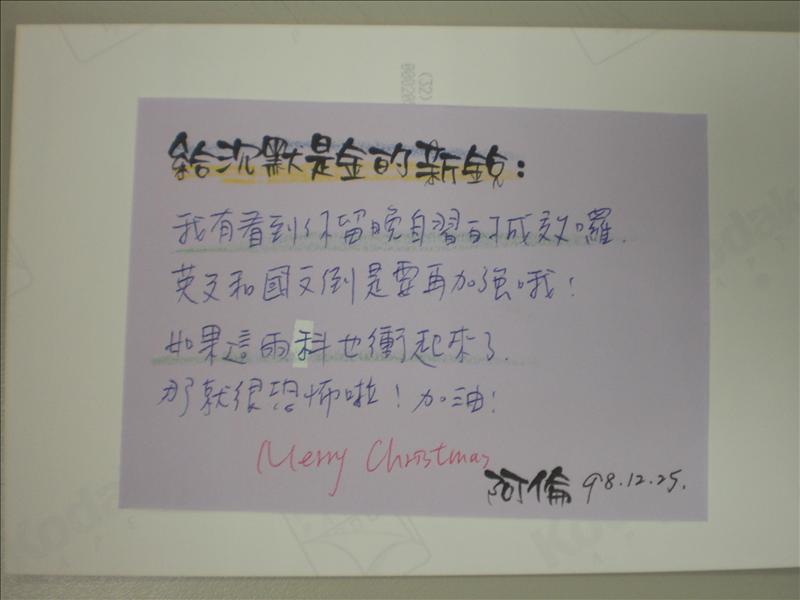 (32)
00020
給沉默是金的新銳:
我有看到你留晚自習的成效囉.
英文和國文倒是要再加強哦!
如果這兩科也衝起來了.
那就很恐怖啦!加油!
Merry Christmas
阿倫 98.12.25.
Kodak
Kodak